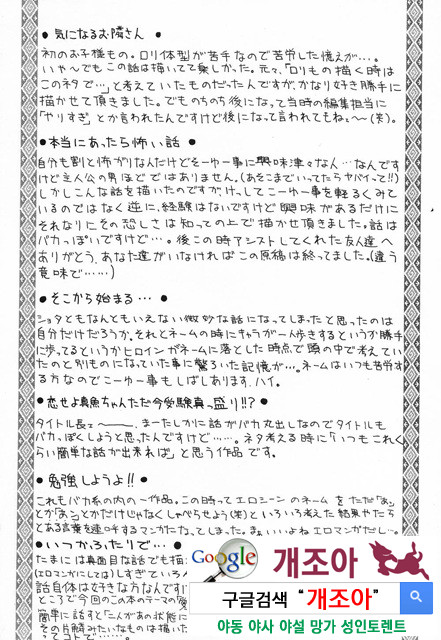 ● 気になるお隣さん ●
初のお子様もの。ロリ体型が苦手なので苦労した憶えが…。
いや〜でもこの話は描いてて楽しかった。元々、「ロリもの描く時は
このネタで…」と考えていたものだったんですが、かなり好き勝手に
描かせて頂きました。でものちのち後になって当時の編集担当に
「やりすぎ」とか言われたんですけど後になって言われてもねぇ〜(笑)。
●本当にあったら怖い話
自分も割と怖がりなんだけどそーゆー事に興味津々な人…なんです
けど主人公の男ほどではありません。(あそこまでいってたらヤバイって!!)
しかしこんな話を描いたのですが、けっしてこーゆー事を軽るくみて
いるのではなく逆に、経験はないですけど興味があるだけに
それなりにその恐しさは知っての上で描かせて頂きました。話は
バカっぽいですけど…。後この時アシストしてくれた友人達へ
ありがとう、あなた達がいなければこの原稿は終ってました。(違う
意味で……)
●そこから始まる… ●
ショタともなんともいえない微妙な話になってしまったと思ったのは
自分だけだろうか。それとネームの時にキャラが一人歩きするというか勝手
に歩ってるというかヒロインがネームに落とした時点で頭の中で考えてい
たのと別ものになっていた事に驚ろいた記憶が…。ネームはいつも苦労す
る方なのでこーゆー事もしばしあります、ハイ。
●恋せよ真魚ちゃんただ今受験真っ盛り!!? ●
タイトル長ェ〜。まーたしかに話がバカ丸出しなのでタイトルも
バカっぽくしようと思ったんですけど……。ネタ考える時に「いつもこれく
らい簡単な話が出来れば」と思う作品です。
● 勉強しようよ!! ●
これもバカ系の内の一作品。この時ってエロシーンのネームをただ「あっ」
とか「あン」とかだけじゃなくしゃべらせよう(笑)といろいろ考えた結果やたら
とある言葉を連呼するマンガになってしまった。まぁいいよねエロマンガだし…。
●いつかふたりで… ●
たまには真面目な話でも描
(エロマンガにしては)しすぎている
話自体は好きな方なんです
ところで今回のこの本のテーマの
簡単に話すと「二人があの状態に
その片鱗みたいなものは描いた
Google
개조아
구글검색 “개조아”
야동 야사 야설 망가 성인토렌트